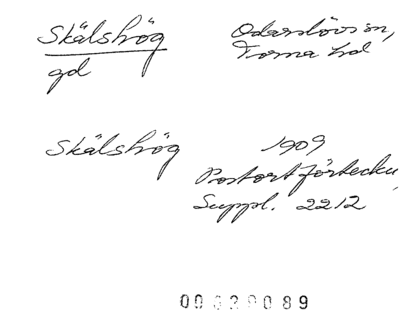 Skälshög Odarslövs sn,
gd Torna hd
Skälshög 1909
Postortförteckn,
Suppl. 2212